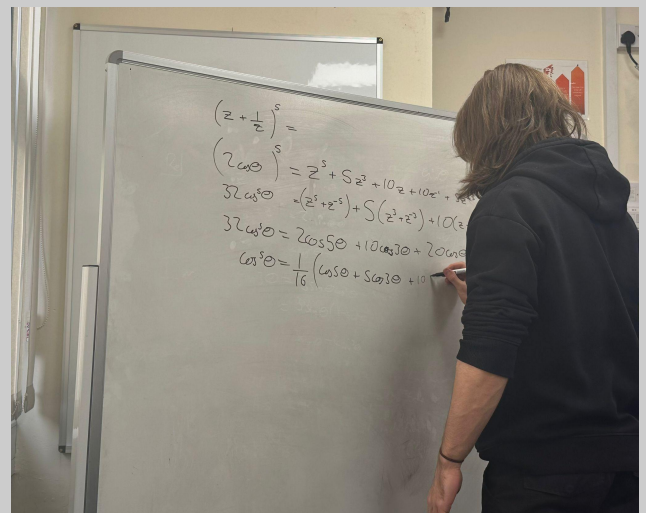 (z + 1/z)^5 =
(2cosθ)^5 = z^5 + 5z^3 + 10z + 10z^-1 +
32cos^5θ = (z^5 + z^-5) + 5(z^3 + z^-3) + 10(z
32cos^5θ = 2cos5θ + 10cos3θ + 20cosθ
cos^5θ = 1/16 (cos5θ + 5cos3θ + 10